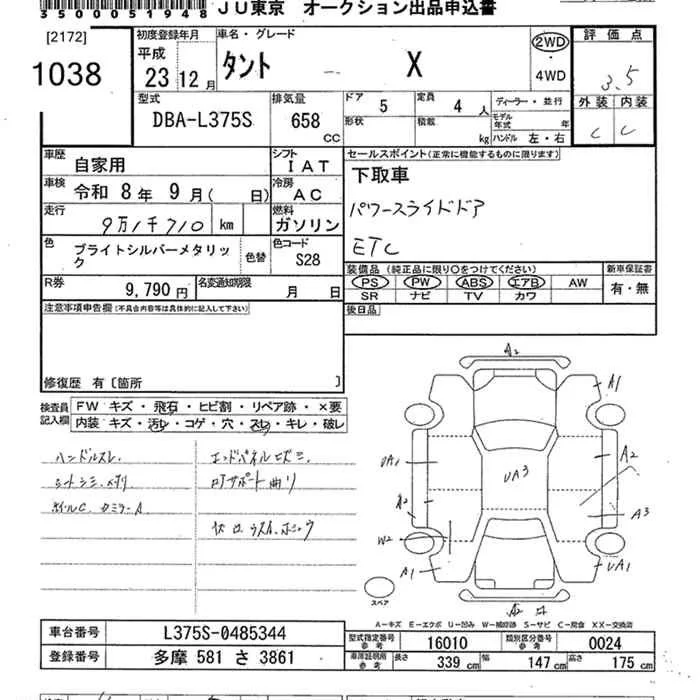 35000519 48 JU東京 オークション出品申込書
[2172] 1038
初度登録年月 平成 23年 12月
車名・グレード タント X
2WD ・ 4WD
評価点 3.5
外装 C 内装 C
型式 DBA-L375S
排気量 658 CC
ドア 5 形状
定員 4 人 積載 kg
ディーラー・並行
モデル年式 年
ハンドル 左・右
車歴 自家用
シフト IAT
車検 令和 8年 9月( 日)
冷房 AC
走行 9万1千710 km
燃料 ガソリン
色 ブライトシルバーメタリック 色替
色コード S28
R券 9,790円
名変通知期限 月 日
セールスポイント(正常に機能するものに限ります)
下取車
パワースライドドア
ETC
装備品(純正品に限り○をつけてください)
PS PW ABS エアB AW
SR ナビ TV カワ
新車保証書 有・無
後日品
注意事項申告欄(不具合内容等は具体的に記入して下さい)
修復歴 有[箇所 ]
検査員記入欄
FW キズ・飛石・ヒビ割・リペア跡・×要
内装 キズ・汚レ・コゲ・穴・スレ・キレ・破レ
ハンドルスレ.
エンドパネルヒズミ.
シートシミ.
サポート曲リ
ホイルC.
A2
A1
UA1
A2
UA3
A2
A3
W2
A1
UA1
A2
スペア
A－キズ E－エクボ U－凹み W－補修跡 S－サビ C－腐食 XX－交換済
車台番号 L375S-0485344
登録番号 多摩 581 さ 3861
型式指定番号 参考 16010
類別区分番号 参考 0024
車庫証明用 参考 長さ 339 cm 幅 147 cm 高さ 175 cm